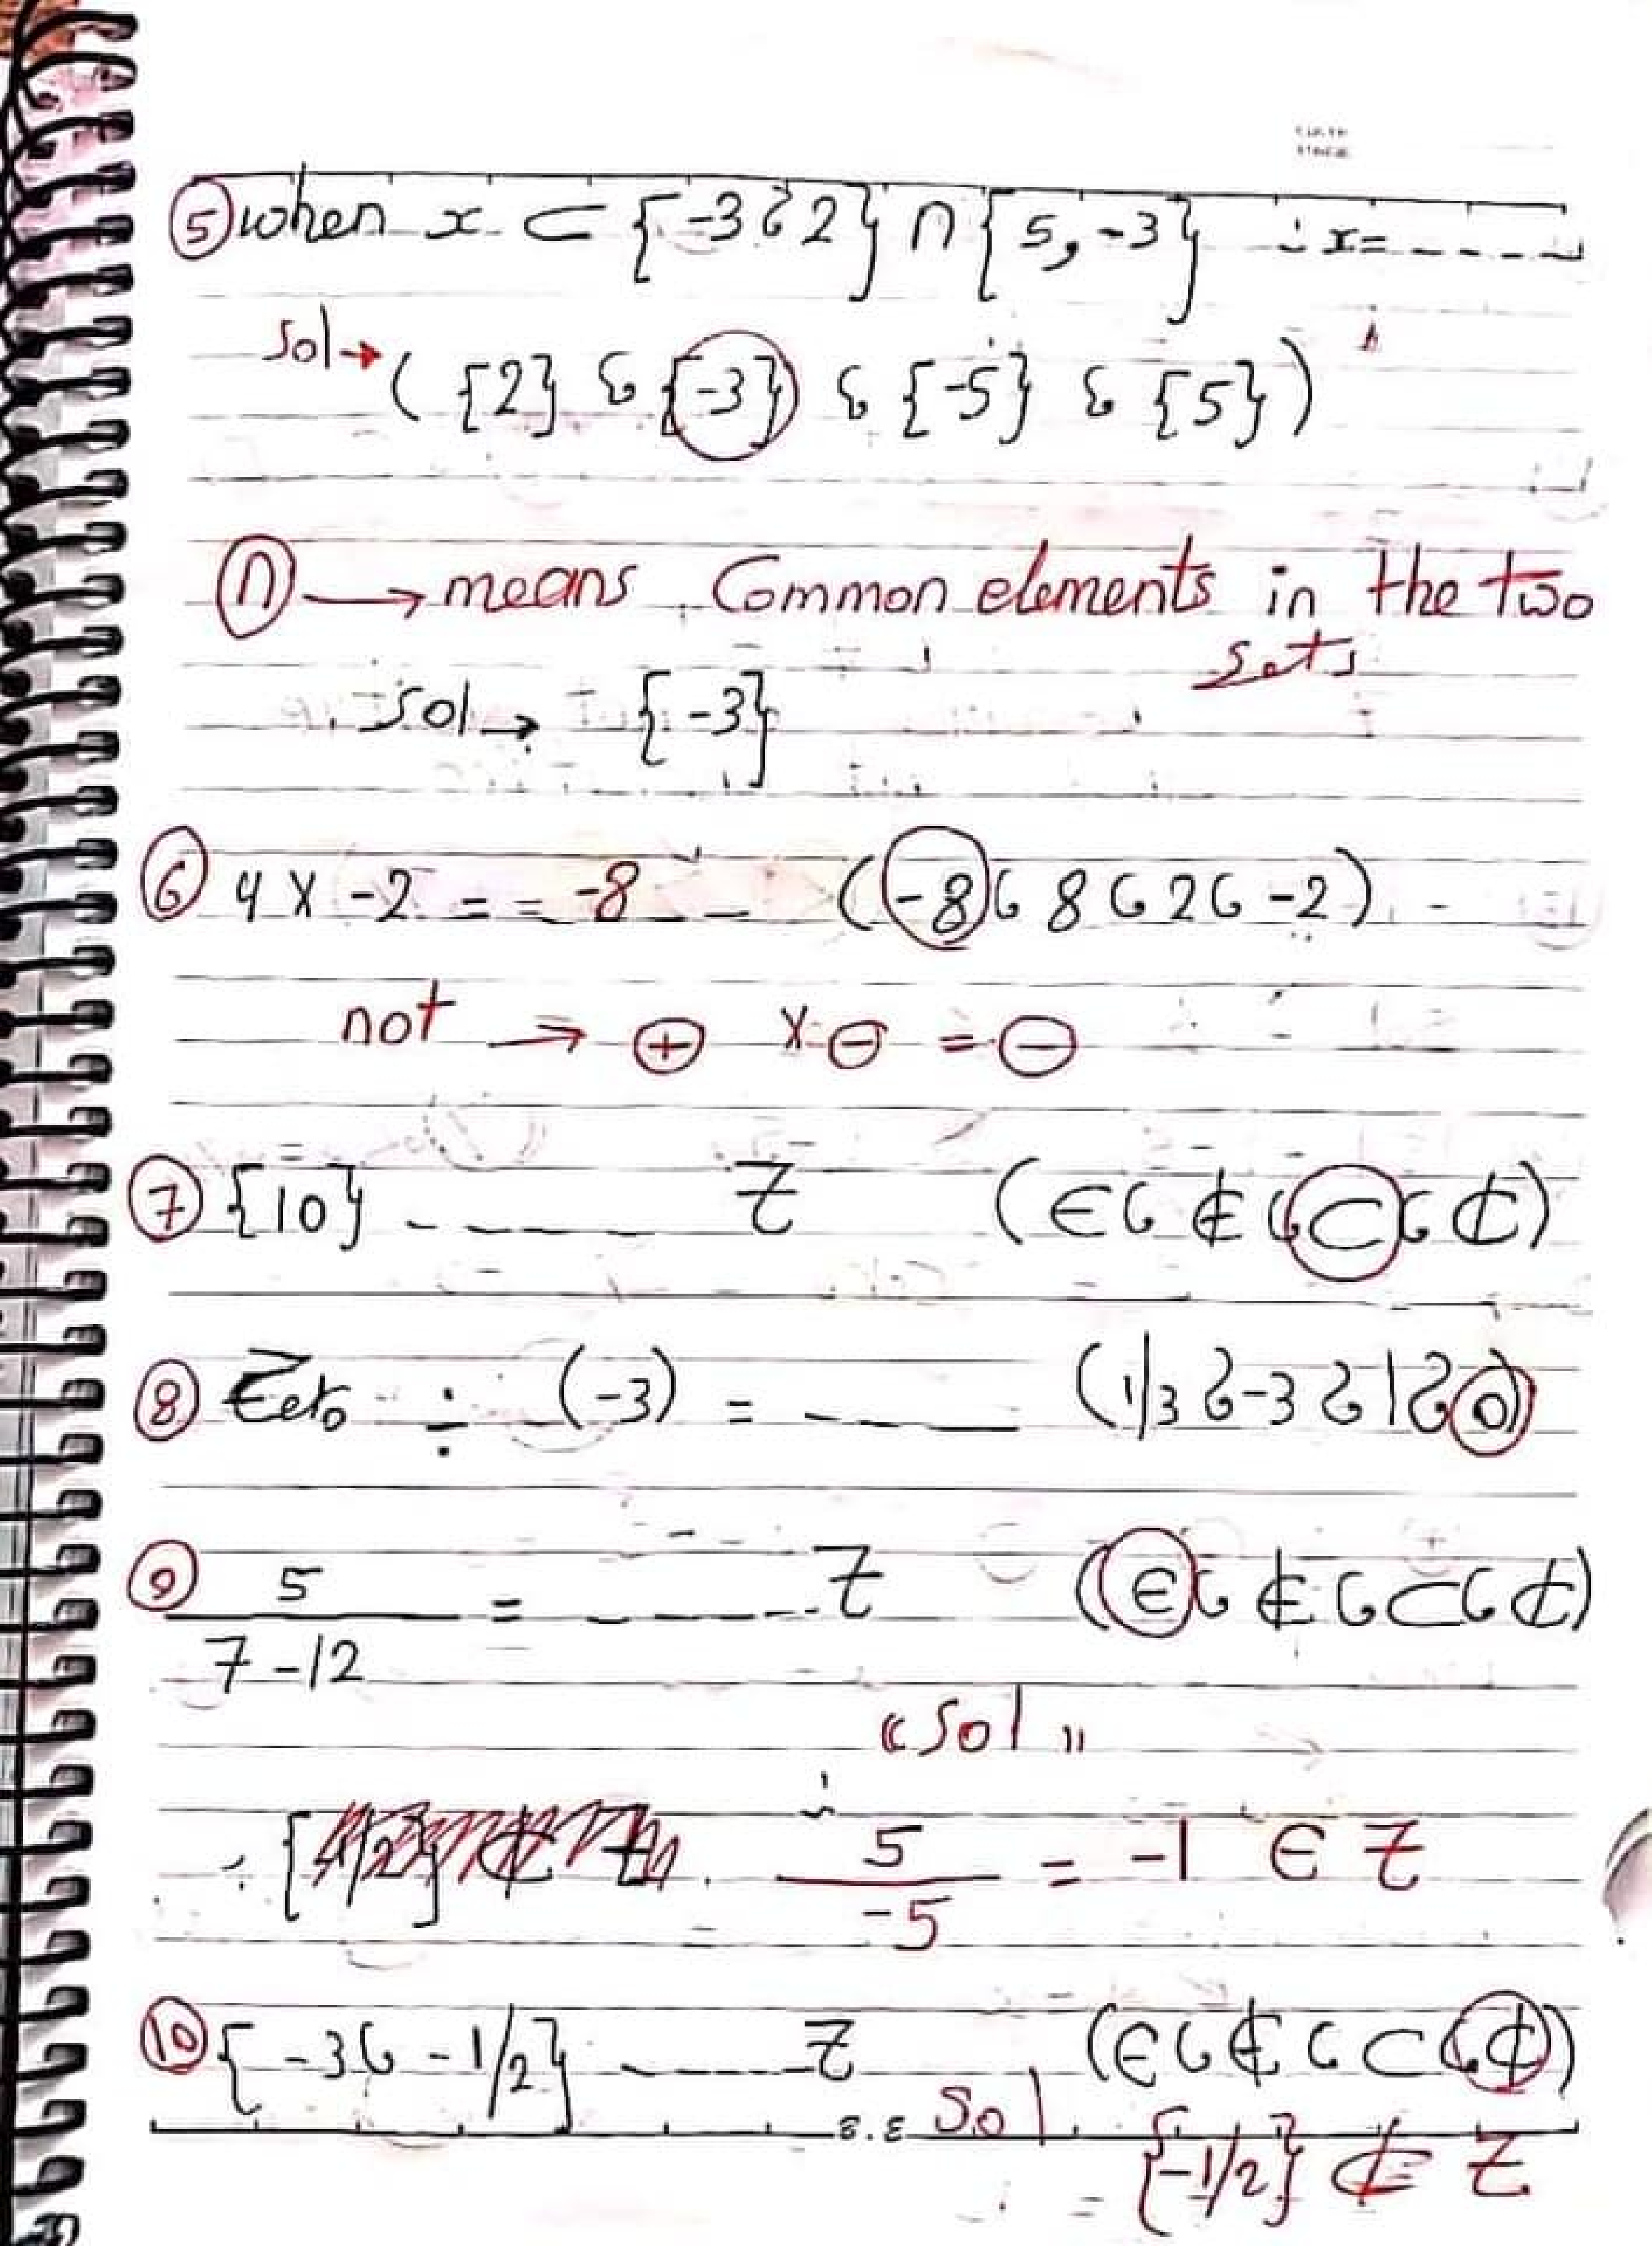 ⑤ when x ⊂ {-3 ، 2} ∩ {5, -3} ∴ x = -----
Sol → ( {2} ، {-3} ، {-5} ، {5} )
∩ → means Common elements in the two
sets
Sol → {-3}
⑥ 4 X -2 = = -8 - ( -8 ، 8 ، 2 ، -2 )
not → ⊕ X ⊖ = ⊖
⑦ {10} ----- Z ( ∈ ، ∉ ، ⊂ ، ⊄ )
⑧ Zero ÷ (-3) = ----- ( 1/3 ، -3 ، 1 ، 0 )
⑨ 5 / 7-12 = ----- Z ( ∈ ، ∉ ، ⊂ ، ⊄ )
"Sol"
5 / -5 = -1 ∈ Z
⑩ {-3 ، -1/2} ----- Z ( ∈ ، ∉ ، ⊂ ، ⊄ )
Sol
{-1/2} ⊄ Z